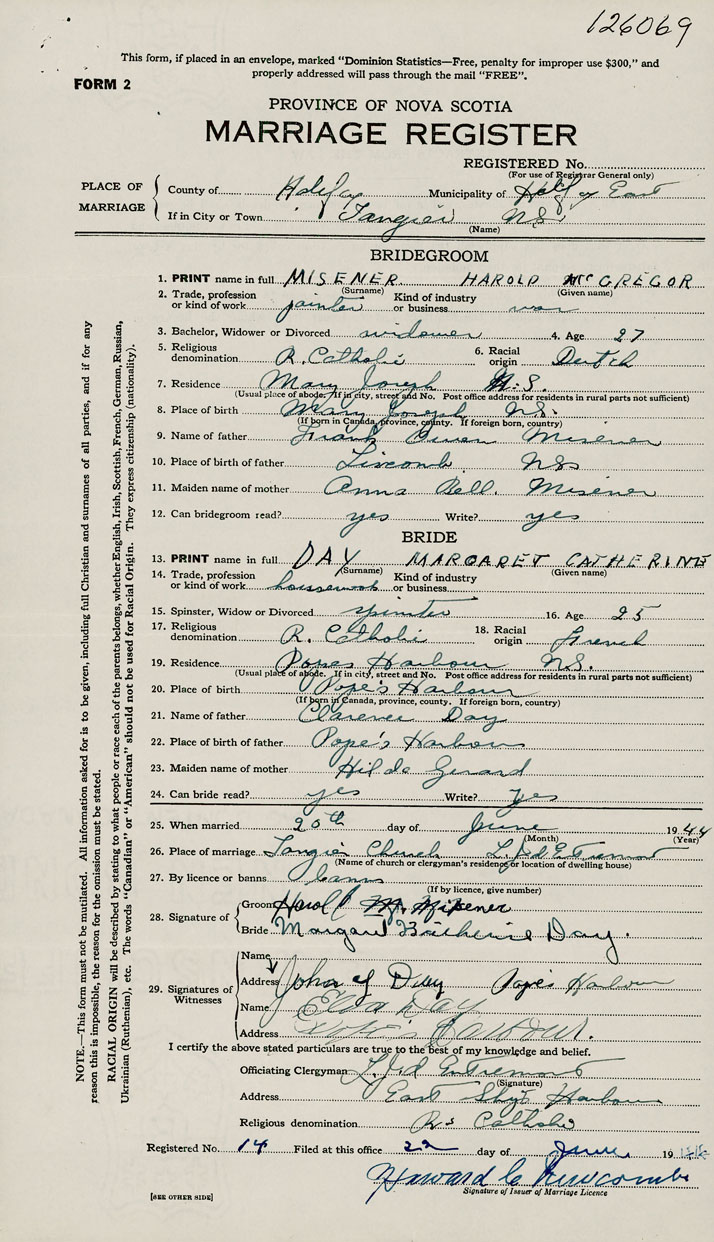 126069
This form, if placed in an envelope, marked "Dominion Statistics—Free, penalty for improper use $300," and
properly addressed will pass through the mail "FREE".
FORM 2
PROVINCE OF NOVA SCOTIA
MARRIAGE REGISTER
REGISTERED No.
(For use of Registrar General only)
PLACE OF MARRIAGE
County of Halifax Municipality of Halifax East
If in City or Town Tangier N.S.
(Name)
BRIDEGROOM
1. PRINT name in full MISENER HAROLD McGREGOR
(Surname) (Given name)
2. Trade, profession or kind of work painter Kind of industry or business war
3. Bachelor, Widower or Divorced widower 4. Age 27
5. Religious denomination R. Catholic 6. Racial origin Dutch
7. Residence Mary Joseph N.S.
(Usual place of abode. If in city, street and No. Post office address for residents in rural parts not sufficient)
8. Place of birth Mary Joseph N.S.
(If born in Canada, province, county. If foreign born, country)
9. Name of father Frank Owen Misener
10. Place of birth of father Liscomb NS
11. Maiden name of mother Anna Bell Misener
12. Can bridegroom read? yes Write? yes
BRIDE
13. PRINT name in full DAY MARGARET CATHERINE
(Surname) (Given name)
14. Trade, profession or kind of work housework Kind of industry or business
15. Spinster, Widow or Divorced spinster 16. Age 25
17. Religious denomination R. Catholic 18. Racial origin French
19. Residence Popes Harbour N.S.
(Usual place of abode. If in city, street and No. Post office address for residents in rural parts not sufficient)
20. Place of birth Pope's Harbour
(If born in Canada, province, county. If foreign born, country)
21. Name of father Clarence Day
22. Place of birth of father Pope's Harbour
23. Maiden name of mother Hilda Gerard
24. Can bride read? yes Write? yes
25. When married 20th day of June 1944
(Month) (Year)
26. Place of marriage Tangier Church L. J. d'Entremont
(Name of church or clergyman's residence or location of dwelling house)
27. By licence or banns banns
(If by licence, give number)
28. Signature of
Groom Harold M. Misener
Bride Margaret Catherine Day.
29. Signatures of Witnesses
Name
Address John J Day Pope's Harbour
Name Day
Address Pope's Harbour.
I certify the above stated particulars are true to the best of my knowledge and belief.
Officiating Clergyman L. J. d'Entremont
(Signature)
Address East Ship Harbour
Religious denomination R. Catholic
Registered No. 14 Filed at this office 22 day of June 1944
Howard C Newcombe
Signature of Issuer of Marriage Licence
[SEE OTHER SIDE]
NOTE.—This form must not be mutilated. All information asked for is to be given, including full Christian and surnames of all parties, and if for any
reason this is impossible, the reason for the omission must be stated.
RACIAL ORIGIN will be described by stating to what people or race each of the parents belongs, whether English, Irish, Scottish, French, German, Russian,
Ukrainian (Ruthenian), etc. The words "Canadian" or "American" should not be used for Racial Origin. They express citizenship (nationality).